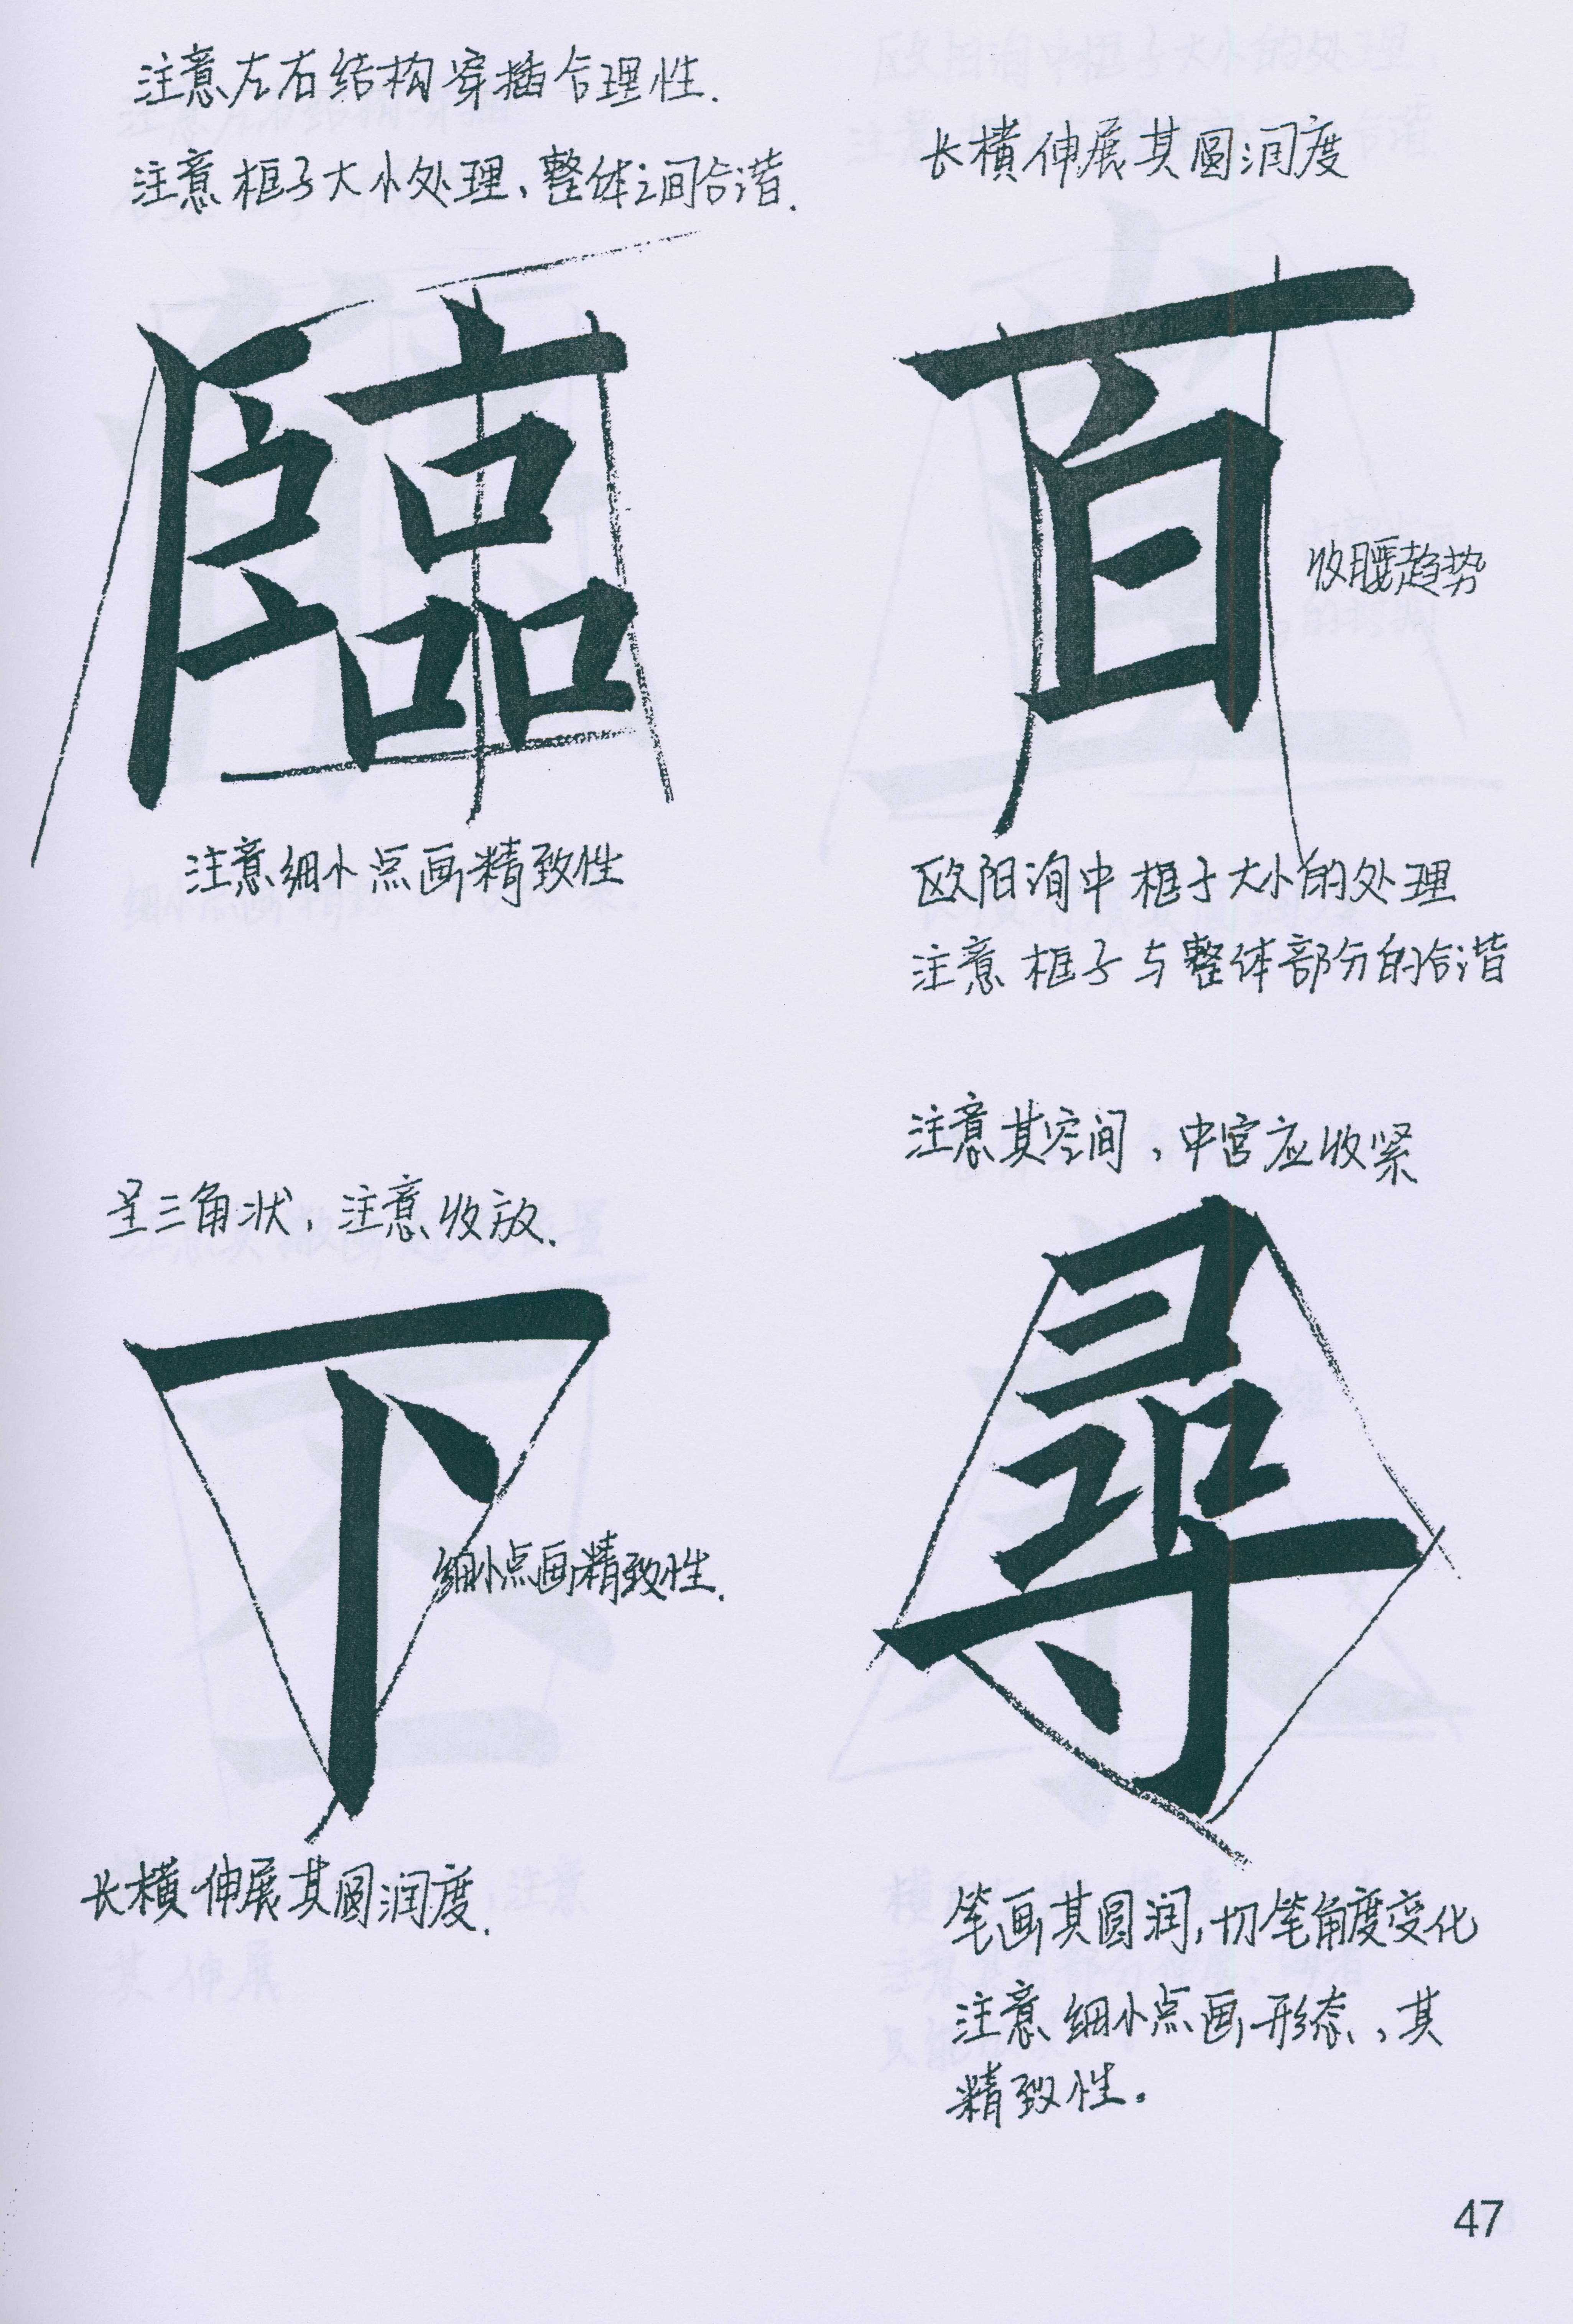 注意左右结构穿插合理性.
注意框子大小处理、整体之间合谐.
臨
注意细小点画精致性
长横伸展其圆润度
百
收腰趋势
欧阳询中框子大小的处理
注意框子与整体部分的合谐
呈三角状，注意收放.
下
细小点画精致性.
长横伸展其圆润度.
注意其空间，中宫应收紧
尋
笔画其圆润，切笔角度变化
注意细小点画形态，其
精致性。
47